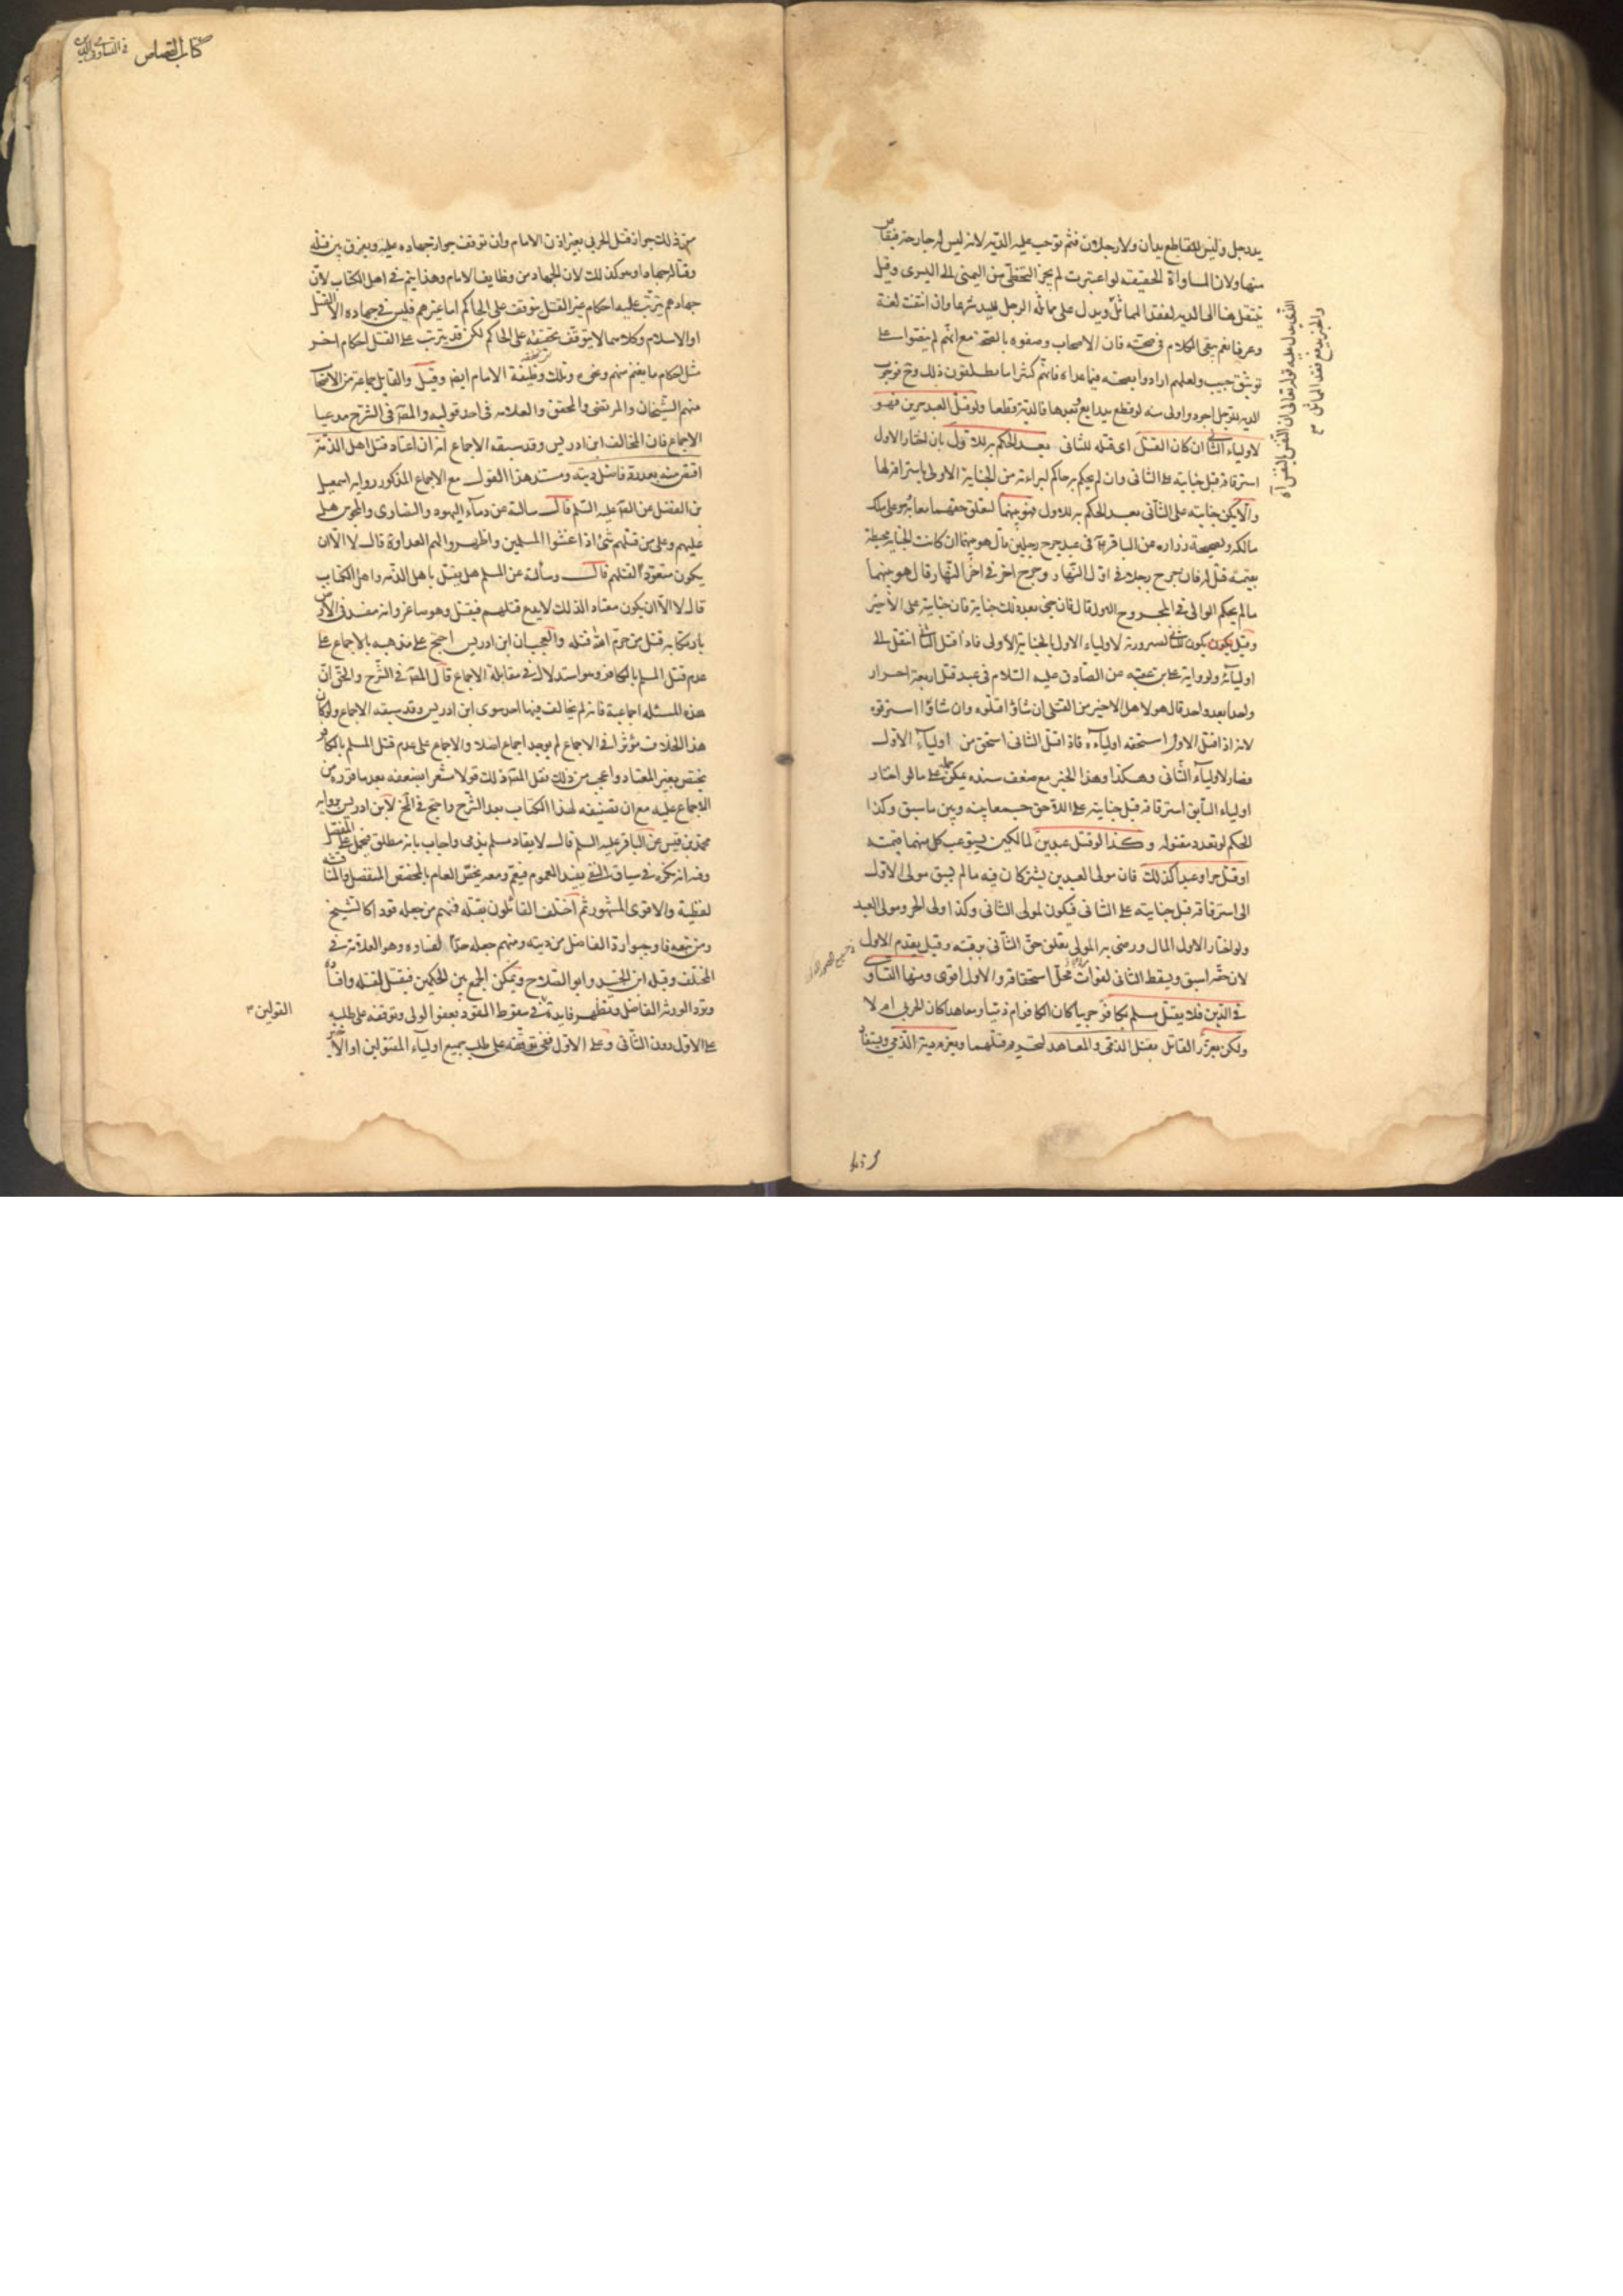 يد رجل وليس للقاطع يدان ولا رجلان فثم توجب عليه الدية لانه ليس له جارحة فيقاص
منها ولان المساواة الحقيقية لو اعتبرت لم يجز التخطي من اليمنى الى اليسرى وقيل
ينتقل هنا الى الدية لفقد المماثل ويدل على مماثلة الرجل لليد شرعا وان انتفت لغة
وعرفا نعم يبقى الكلام في صحته فان الاصحاب وصفوه بالصحة مع انهم لم ينصوا على
توثيق حبيب ولعلهم ارادوا بصحته فيما عداه فانهم كثيرا ما يطلقون ذلك وح فوجوب
الدية للرجل اجود واولى منه لو قطع يدا بعدها فالدية قطعا ولو قتل العبد حرين فهو
لاولياء الثاني ان كان القتل اى قتله للثانى بعد الحكم به للاول بان اختار الاول
استرقاقه قبل جنايته على الثانى وان لم يحكم به حاكم لبراءته من الجناية الاولى باسترقاقه لها
والا يكن جنايته على الثانى بعد الحكم به للاول فهو بينهما لتعلق حقهما معا به وهو على ملك
مالكه ولصحيحة زرارة عن الباقر ع في عبد جرح رجلين قال هو بينهما ان كانت الجناية محيطة
بقيمته قيل له فان جرح رجلا في اول النهار وجرح اخر في اخر النهار قال هو بينهما
مالم يحكم الوالى في المجروح الاول قال فان جنى بعد ذلك جناية فان جنايته على الاخير
وقيل يكون للثاني لصيرورته لاولياء الاول بالجناية الاولى فاذا قتل الثاني انتقل الى
اوليائه ولرواية على بن عقبه عن الصادق عليه السلام في عبد قتل اربعة احرار
واحدا بعد واحد قال هو لاهل الاخير من القتلى ان شاؤا قتلوه وان شاؤا استرقوه
لانه اذا قتل الاول استحقه اولياءه فاذا قتل الثانى استحق من اولياء الاول
فصار لاولياء الثانى وهكذا وهذا الخبر مع ضعف سنده يمكن حمله على ما لو اختار
اولياء السابق استرقاقه قبل جنايته على اللاحق جمعا بينه وبين ما سبق وكذا
الحكم لو تعدد مقتوله وكذا لو قتل عبدين لمالكين يستوعب كل منهما قيمته
او قتل حرا وعبدا كذلك فان مولى العبدين يشتركان فيه مالم يسبق مولى الاول
الى استرقاقه قبل جنايته على الثانى فيكون لمولى الثانى وكذا ولى الحر ومولى العبد
ولو اختار الاول المال ورضى به المولى تعلق حق الثانى برقبته وقيل يقدم الاول
لان حقه اسبق ويسقط الثانى لفوات محل استحقاقه والاول اقوى ومنها التساوي
في الدين فلا يقتل مسلم بكافر حربيا كان الكافر ام ذميا ومعاهدا كان الحربي ام لا
ولكن يعزر القاتل بقتل الذمى والمعاهد لتحريم قتلهما ويغرم دية الذمي ويستفاد
الذى يدل عليه قوله تعالى ان النفس بالنفس آه
والخبر يدفع فقد المماثل
كتاب القصاص في التساوي في الدين
من ذلك جواز قتل الحربي بغير اذن الامام وان توقف جواز جهاده عليه ويفرق بين قتله
وقتاله جهادا وهو كذلك لان الجهاد من وظايف الامام وهذا يتم في اهل الكتاب لان
جهادهم يترتب عليه احكام غير القتل يتوقف على الحاكم اما غيرهم فليس في جهاده الا القتل
او الاسلام وكلاهما لا يتوقف تحققه على الحاكم لكن قد يترتب على القتل احكام اخر
مثل احكام ما يغنم منهم ونحوه وتلك وظيفة الامام ايضا وقيل والقايل جماعة من الاصحاب
منهم الشيخان والمرتضى والمحقق والعلامه فى احد قوليه والمص في الشرح مدعيا
الاجماع فان المخالف ابن ادريس وقد سبقه الاجماع انه ان اعتاد قتل اهل الذمة
اقتص منه بعد رد فاضل ديته ومستند هذا القول مع الاجماع المذكور رواية اسمعيل
بن الفضل عن الصادق عليه السلم قال سالته عن دماء اليهود والنصارى والمجوس هل
عليهم وعلى من قتلهم شئ اذا غشوا المسلمين واظهروا لهم العداوة قال لا الا ان
يكون متعودا لقتلهم قال وسألته عن المسلم هل يقتل باهل الذمة واهل الكتاب
قال لا الا ان يكون معتادا لذلك لا يدع قتلهم فيقتل وهو صاغر وانه مفسد في الارض
بارتكابه قتل من حرم الله قتله والعجب ان ابن ادريس احتج على مذهبه بالاجماع على
عدم قتل المسلم بالكافر وهو استدلال في مقابلة الاجماع قال المص في الشرح والحق ان
هذه المسئله اجماعية فانه لم يخالف فيها احد سوى ابن ادريس وقد سبقه الاجماع ولو كان
هذا الخلاف مؤثرا في الاجماع لم يوجد اجماع اصلا والاجماع على عدم قتل المسلم بالكافر
يختص بغير المعتاد واعجب من ذلك نقل المص ذلك قولا مشعرا بضعفه بعد ما قرره من
الاجماع عليه مع ان تصنيفه لهذا الكتاب بعد الشرح واحتج في المخ لابن ادريس برواية
محمد بن قيس عن الباقر عليه السلم قال لا يقاد مسلم بذمى واجاب بانه مطلق فيحمل على المفصل
وفيه انه نكرة في سياق النفي يفيد العموم فيعم ومعه يخص العام بالمخصص المنفصل والمناقشة
لفظية والاقوى المشهور ثم اختلف القائلون بقتله فمنهم من جعله قودا كالشيخ
ومن تبعه فاوجبوا رد الفاضل من ديته ومنهم جعله حدا لفساده وهو العلامة في
المختلف وقبله ابن الجنيد وابو الصلاح ويمكن الجمع بين الحكمين فيقتل لقتله وافساده
ويرد الورثة الفاضل وتظهر فايدة في سقوط القود بعفو الولى وتوقفه على طلبه
على الاول دون الثانى وعلى الاول ففي توقفه على طلب جميع اولياء المقتولين او الاخير
القولين